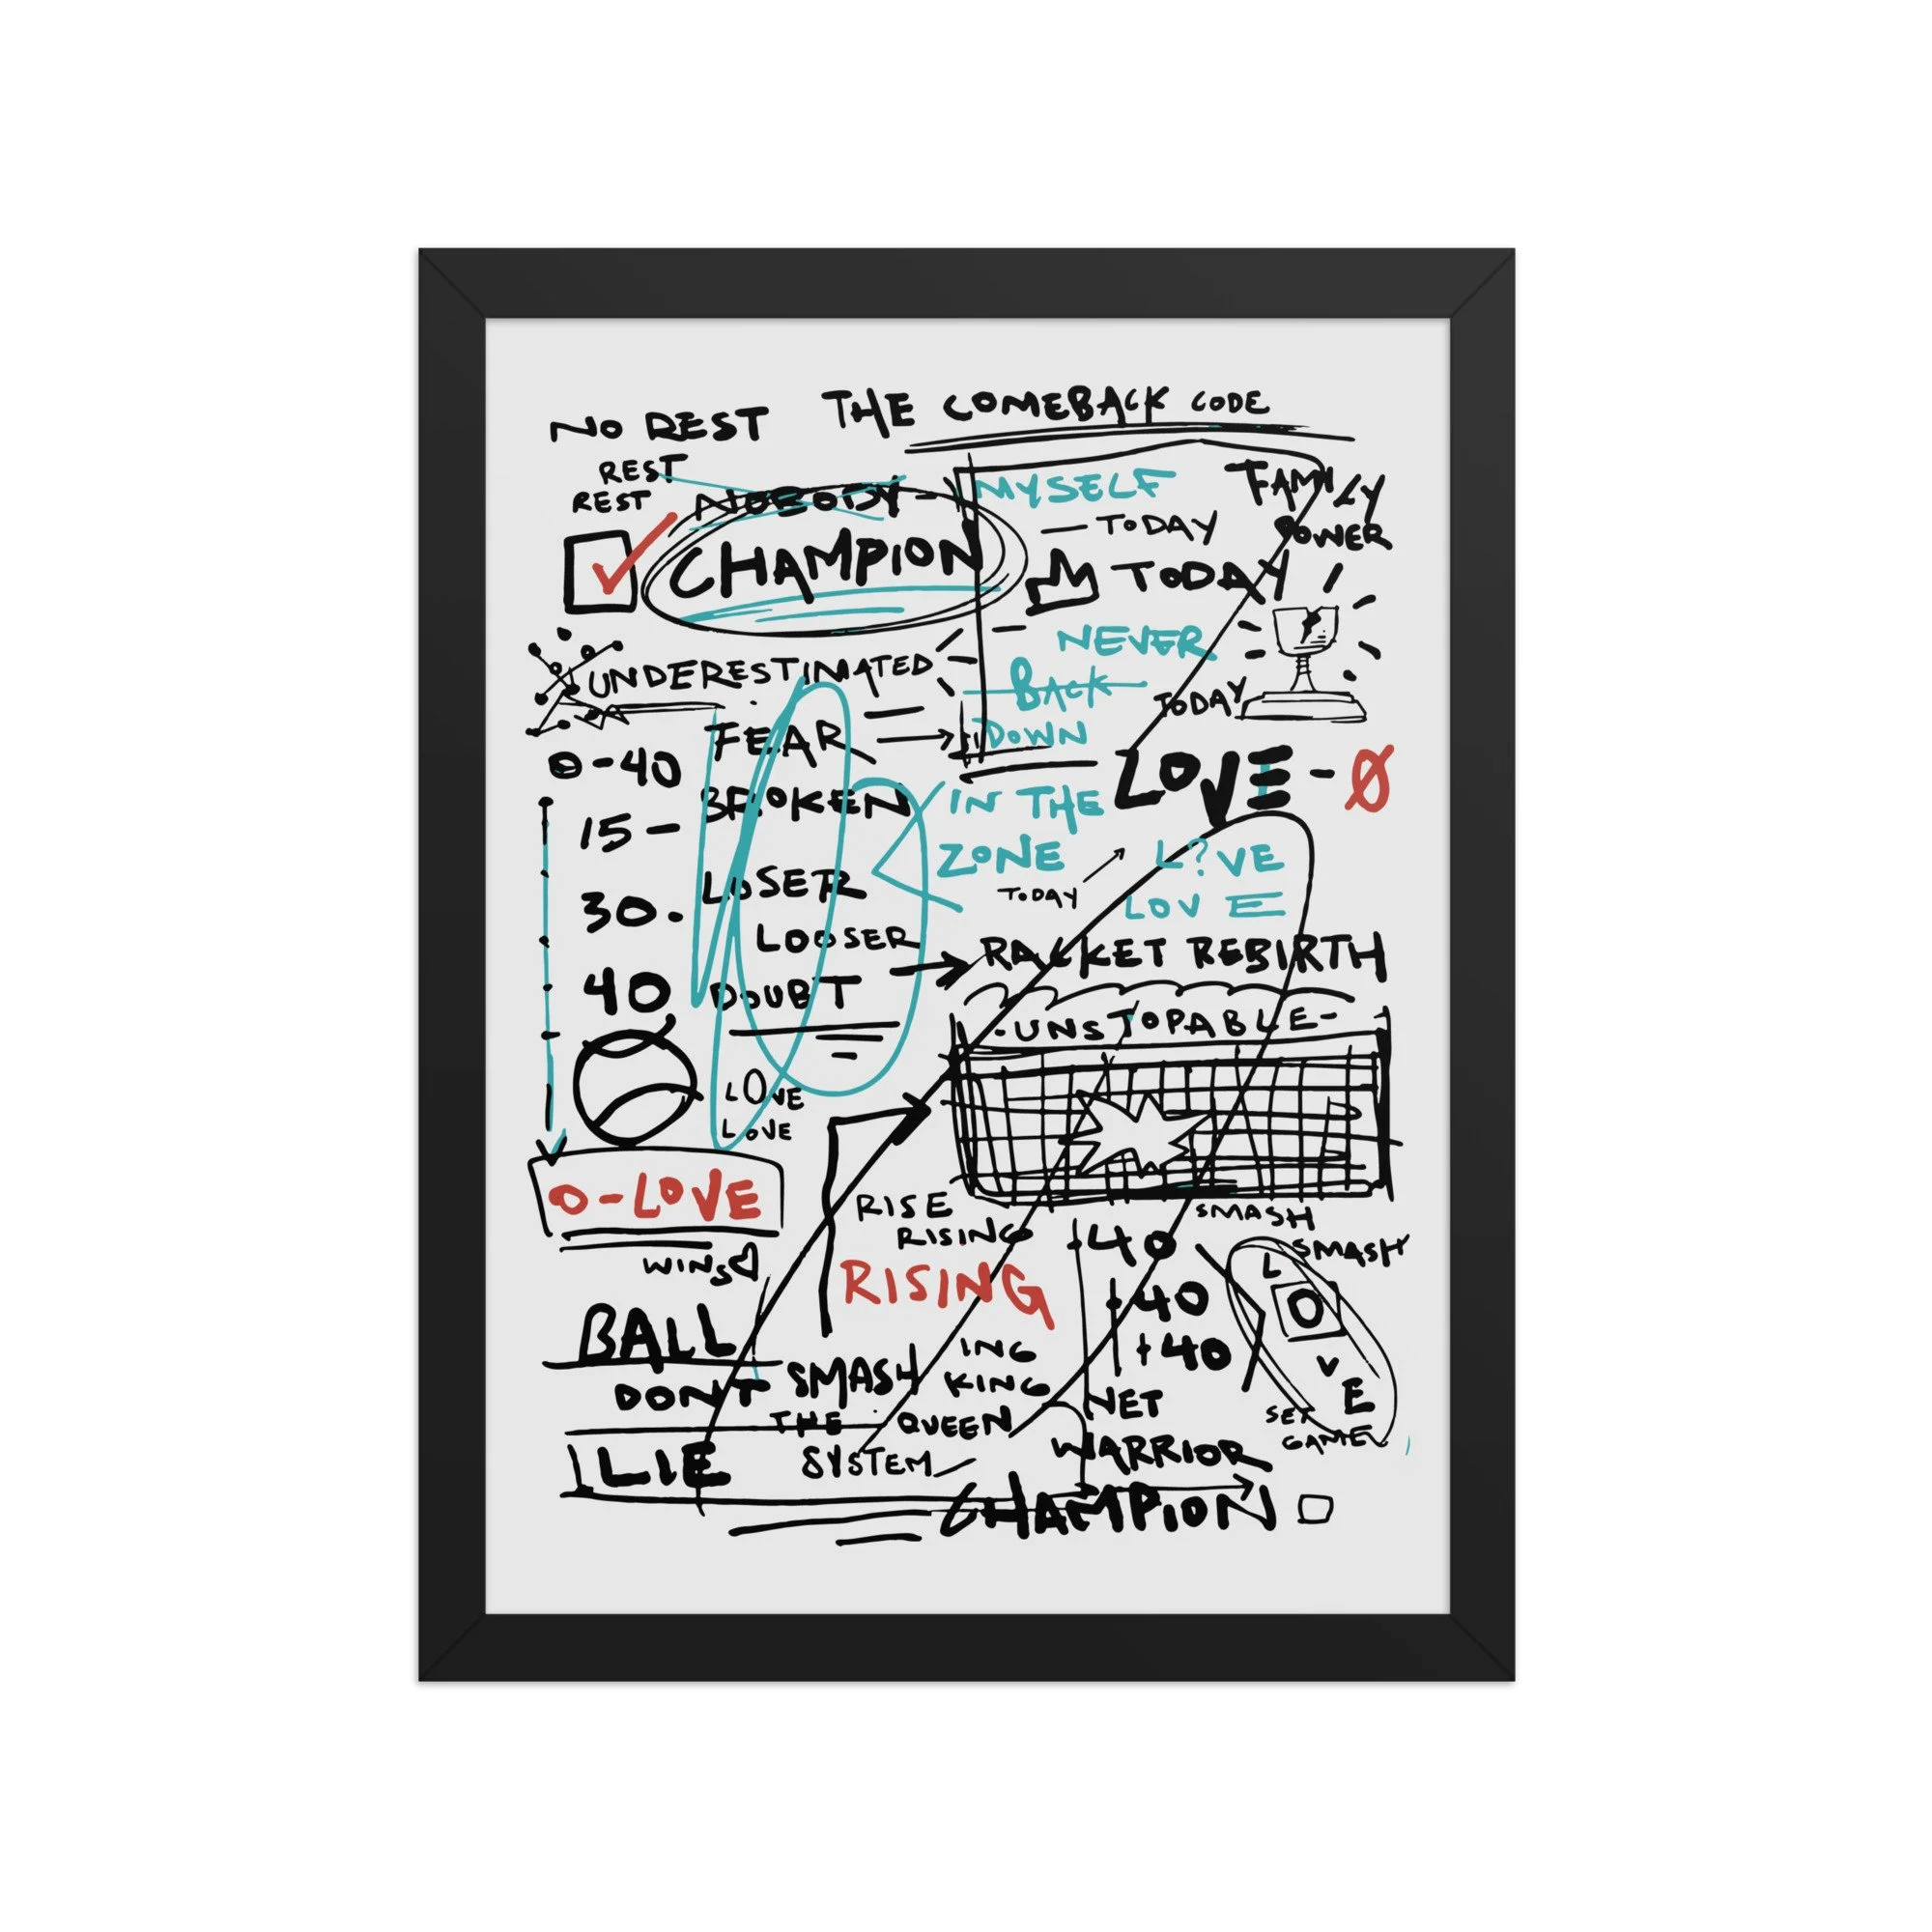 THE COMEBACK CODE
NO REST
REST
REST
NOBODY
MYSELF
FAMILY
POWER
TODAY
CHAMPION
TODAY
UNDERESTIMATED
NEVER
BACK
DOWN
TODAY
FEAR
0-40
LOVE-0
BROKEN
IN THE
ZONE
15-
TODAY
L?VE
LOVE
LOSER
30.
LOOSER
RACKET REBIRTH
40
DOUBT
-UNSTOPABLE-
LOVE
LOVE
0-LOVE
WINS
RISE
RISING
RISING
SMASH
SMASH
+40
+40
+40
LOVE
BALL
DONT
LIE
SMASH
THE
SYSTEM
ING
KING
QUEEN
NET
WARRIOR
CHAMPION
SET
GAME